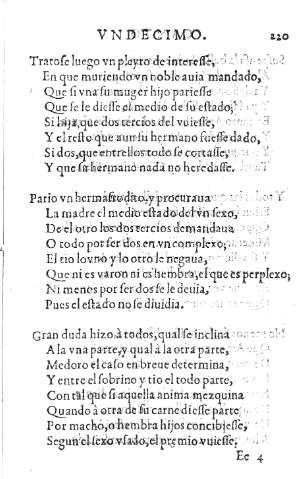 VNDECIMO. 220
Tratose luego vn pleyto de interesse,
En que muriendo vn noble auia mandado,
Que si vna su muger hijo pariesse
Que se le diesse el medio de su estado,
Si hija, que dos tercios del vuiesse,
Y el resto que aun su hermano fuesse dado,
Si dos, que entrellos todo se cortasse,
Y que su hermano nada no heredasse.
Pario vn hermafrodito, y procuraua
La madre el medio estado del vn sexo,
De el otro los dos tercios demandaua
O todo por ser dos en vn complexo,
El tio lo vno y lo otro le negaua,
Que ni es varon ni es hembra, el que es perplexo,
Ni menos por ser dos se le deuia,
Pues el estado no se diuidia.
Gran duda hizo à todos, qual se inclina
A la vna parte, y qual à la otra parte,
Medoro el caso en breue determina,
Y entre el sobrino y tio el todo parte,
Con tal que si aquella anima mezquina
Quando à otra de su carne diesse parte
Por macho, o hembra hijos concibiesse,
Segun el sexo vsado, el premio vuiesse.
Ee 4